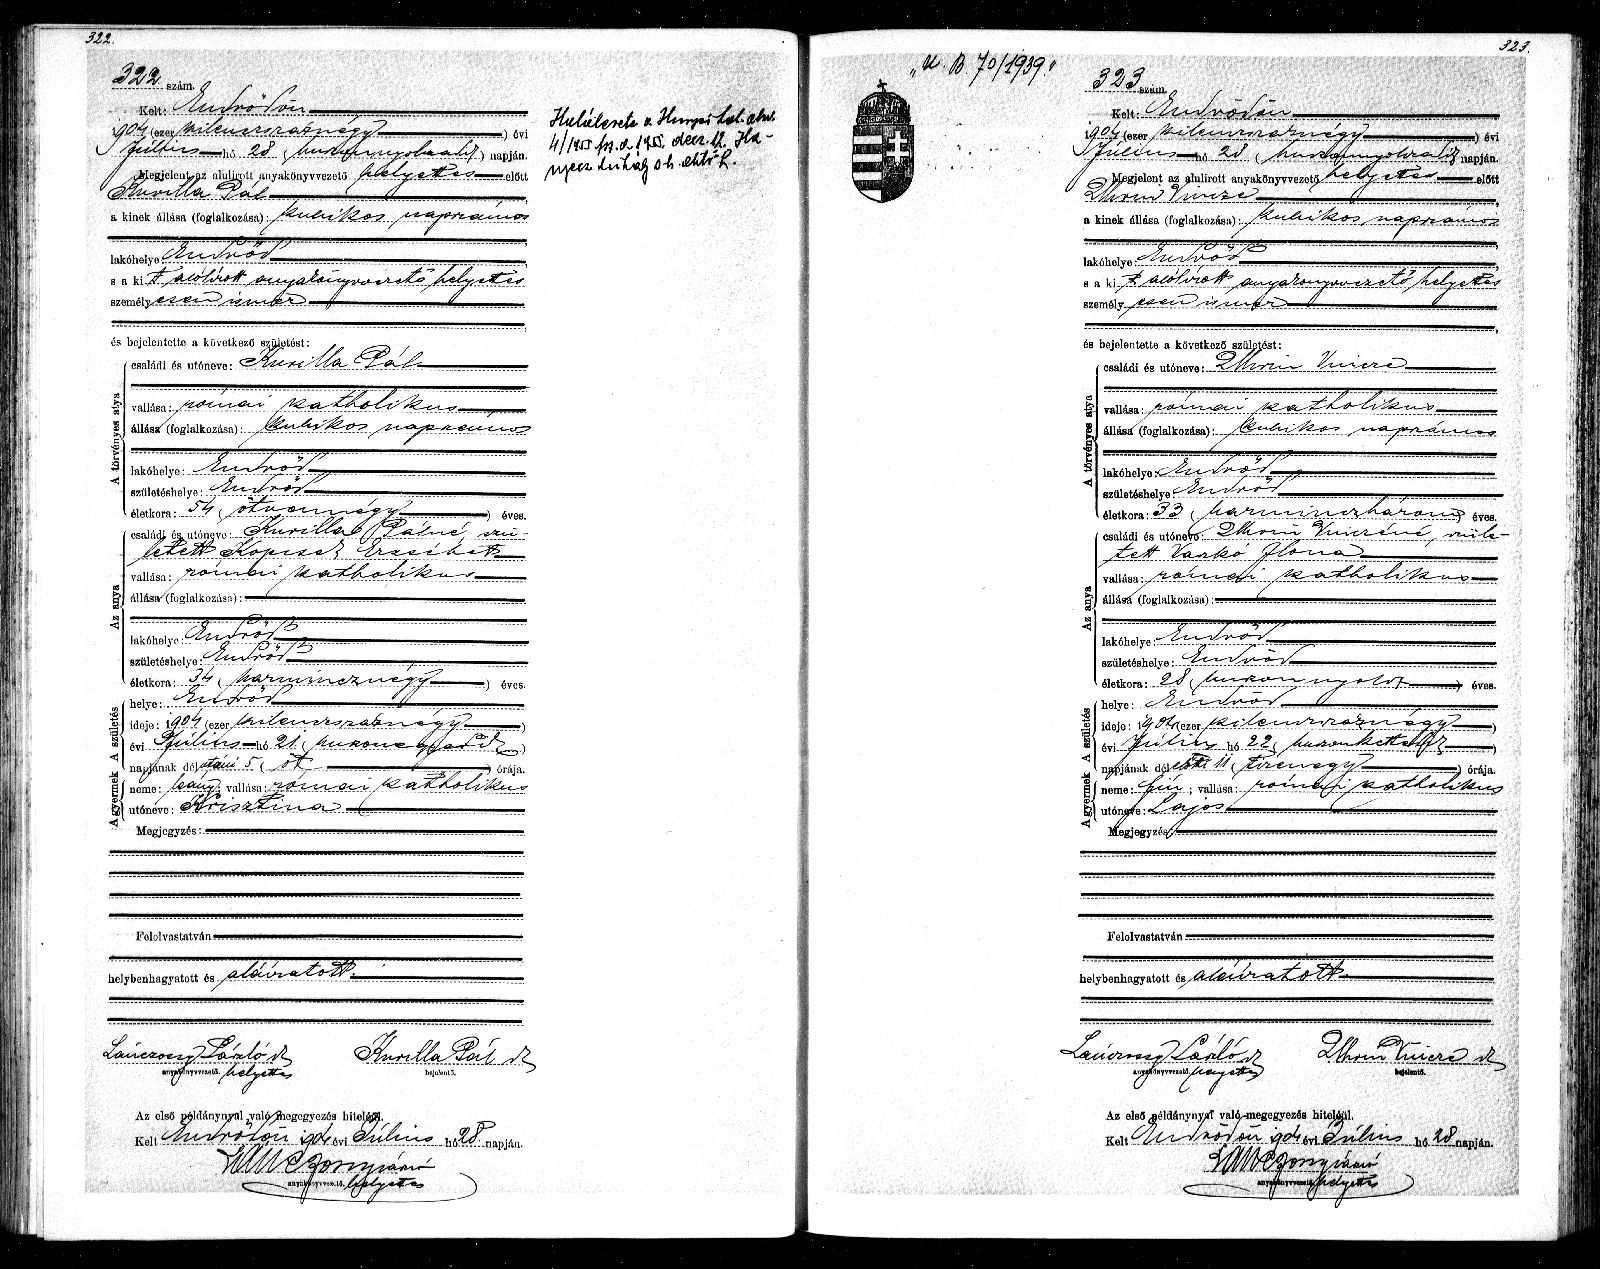 322.
322 szám.
Kelt: Endrődön
1904 (ezer kilenczszáznégy) évi
Július hó 28 (huszonnyolczadik) napján.
Megjelent az alulirott anyakönyvvezető helyettes előtt
Kurilla Pál
a kinek állása (foglalkozása): kubikos napszámos
lakóhelye Endrőd
s a kit alólírott anyakönyvvezető helyettes
személyesen ismer
és bejelentette a következő születést:
A törvényes atya
családi és utóneve: Kurilla Pál
vallása: római katholikus
állása (foglalkozása): kubikos napszámos
lakóhelye: Endrőd
születéshelye: Endrőd
életkora: 54 (ötvennégy) éves.
Az anya
családi és utóneve: Kurilla Pálné, szü-
letett Erzsébet
vallása: római katholikus
állása (foglalkozása):
lakóhelye: Endrőd
születéshelye: Endrőd
életkora: 34 (harmincznégy) éves.
A születés
helye: Endrőd
ideje: 1904 (ezer kilenczszáznégy)
évi Július hó 21 (huszonegyedik)
napjának délutáni 5 (öt) órája.
A gyermek
neme: leány; vallása: római katholikus
utóneve: Krisztina
Megjegyzés:
Felolvastatván
helybenhagyatott és aláiratott.
Lánczossy László sk Kurilla Pál sk
anyakönyvvezető. helyettes bejelentő.
Az első példánynyal való megegyezés hiteléül.
Kelt Endrődön 1904 évi Július hó 28 napján.
anyakönyvvezető, helyettes
Halálesete a
4/1955 1955. decz. 12.
323.
"U. B 70/1939."
323 szám.
Kelt: Endrődön
1904 (ezer kilenczszáznégy) évi
Július hó 28 (huszonnyolczadik) napján.
Megjelent az alulirott anyakönyvvezető helyettes előtt
Vincze
a kinek állása (foglalkozása): kubikos napszámos
lakóhelye Endrőd
s a kit alólírott anyakönyvvezető helyettes
személyesen ismer
és bejelentette a következő születést:
A törvényes atya
családi és utóneve: Vincze
vallása: római katholikus
állása (foglalkozása): kubikos napszámos
lakóhelye: Endrőd
születéshelye: Endrőd
életkora: 33 (harminczhárom) éves.
Az anya
családi és utóneve: Vinczéné, szüle-
tett Varkó Ilona
vallása: római katholikus
állása (foglalkozása):
lakóhelye: Endrőd
születéshelye: Endrőd
életkora: 28 (huszonnyolcz) éves.
A születés
helye: Endrőd
ideje: 1904 (ezer kilenczszáznégy)
évi Július hó 22 (huszonkettedik)
napjának délelőtti 11 (tizenegy) órája.
A gyermek
neme: fiú; vallása: római katholikus
utóneve: Lajos
Megjegyzés:
Felolvastatván
helybenhagyatott és aláiratott
Lánczossy László sk Vincze sk
anyakönyvvezető. helyettes bejelentő.
Az első példánynyal való megegyezés hiteléül.
Kelt Endrődön 1904 évi Július hó 28 napján.
anyakönyvvezető, helyettes